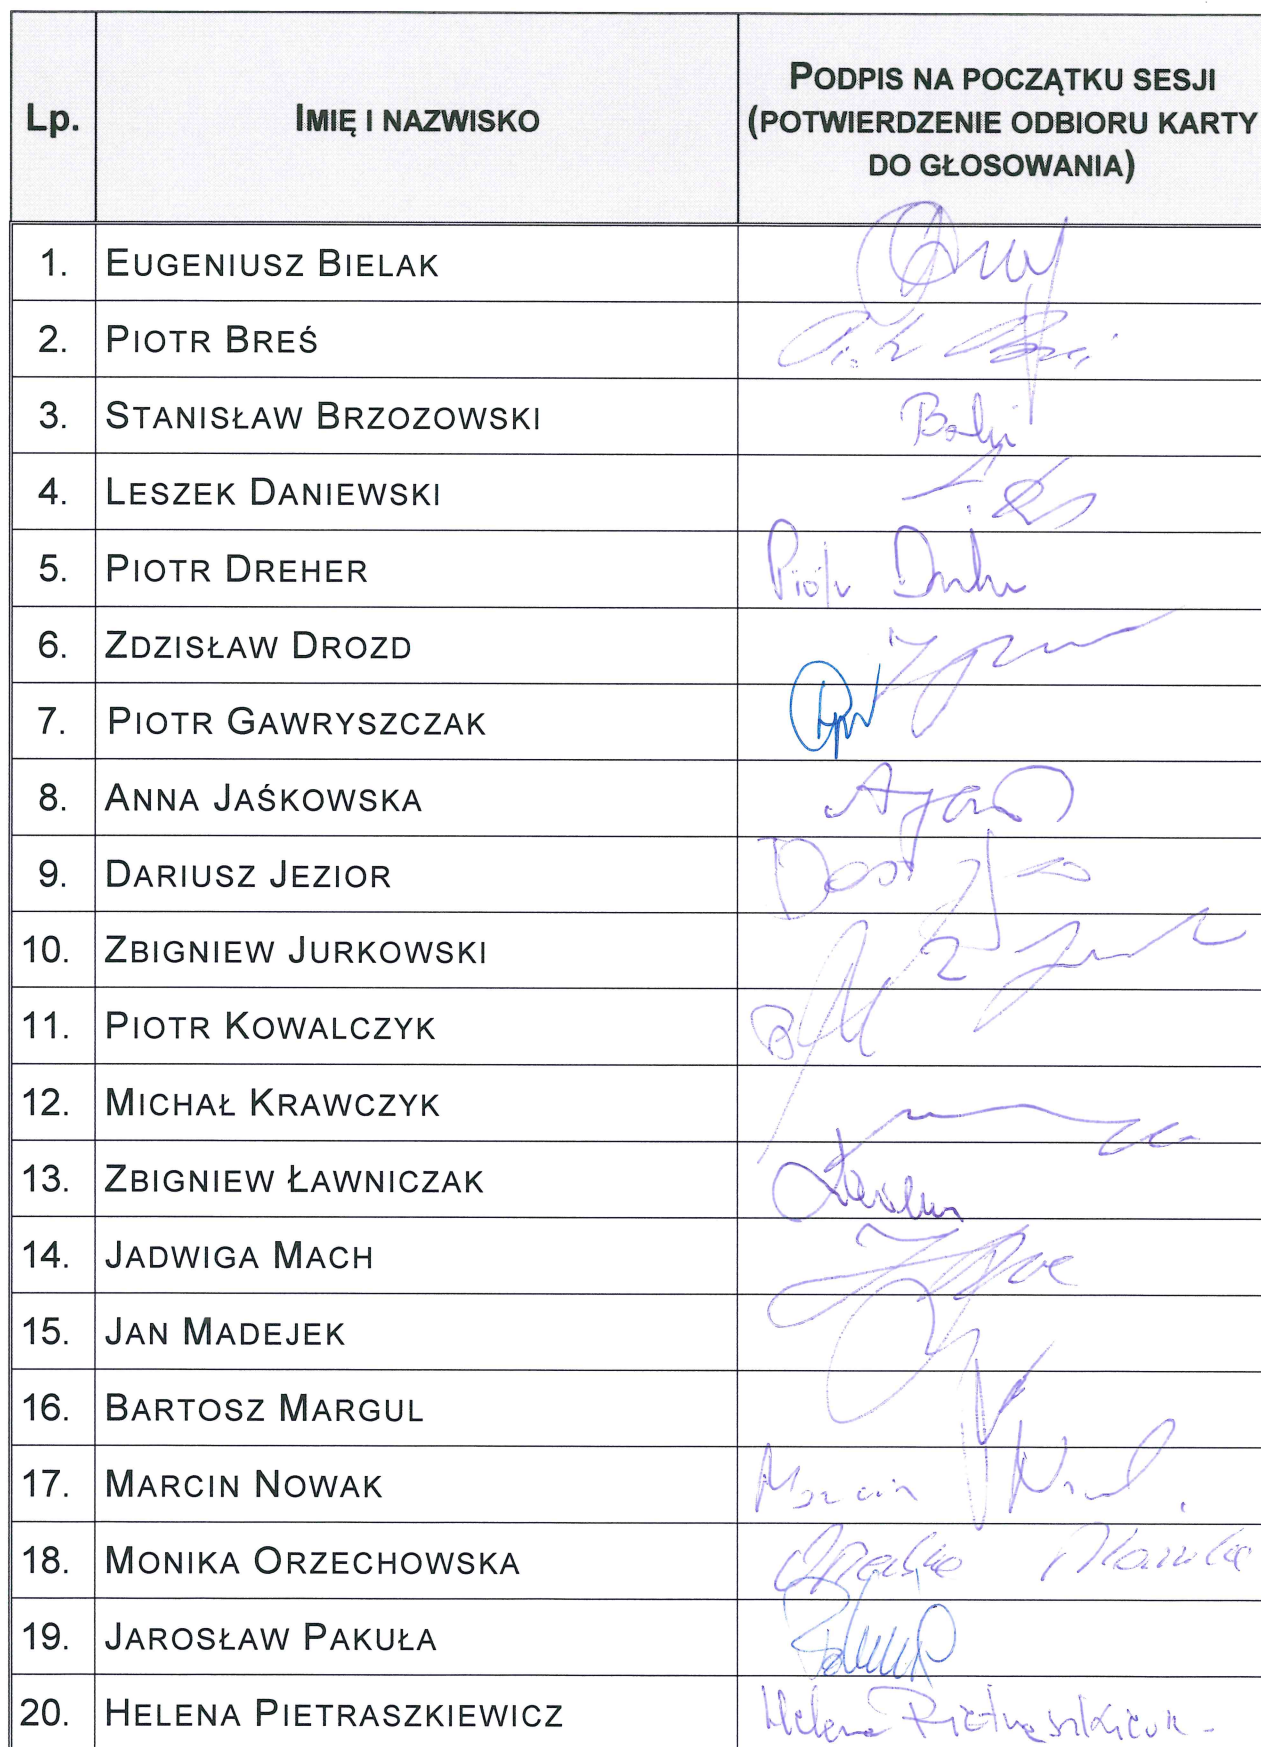 Lp. IMIĘ I NAZWISKO PODPIS NA POCZĄTKU SESJI
(POTWIERDZENIE ODBIORU KARTY
DO GŁOSOWANIA)
1. EUGENIUSZ BIELAK
2. PIOTR BREŚ
3. STANISŁAW BRZOZOWSKI
4. LESZEK DANIEWSKI
5. PIOTR DREHER Piotr
6. ZDZISŁAW DROZD
7. PIOTR GAWRYSZCZAK
8. ANNA JAŚKOWSKA
9. DARIUSZ JEZIOR
10. ZBIGNIEW JURKOWSKI
11. PIOTR KOWALCZYK
12. MICHAŁ KRAWCZYK
13. ZBIGNIEW ŁAWNICZAK
14. JADWIGA MACH
15. JAN MADEJEK
16. BARTOSZ MARGUL
17. MARCIN NOWAK Marcin
18. MONIKA ORZECHOWSKA Monika
19. JAROSŁAW PAKUŁA
20. HELENA PIETRASZKIEWICZ Helena Pietraszkiewicz